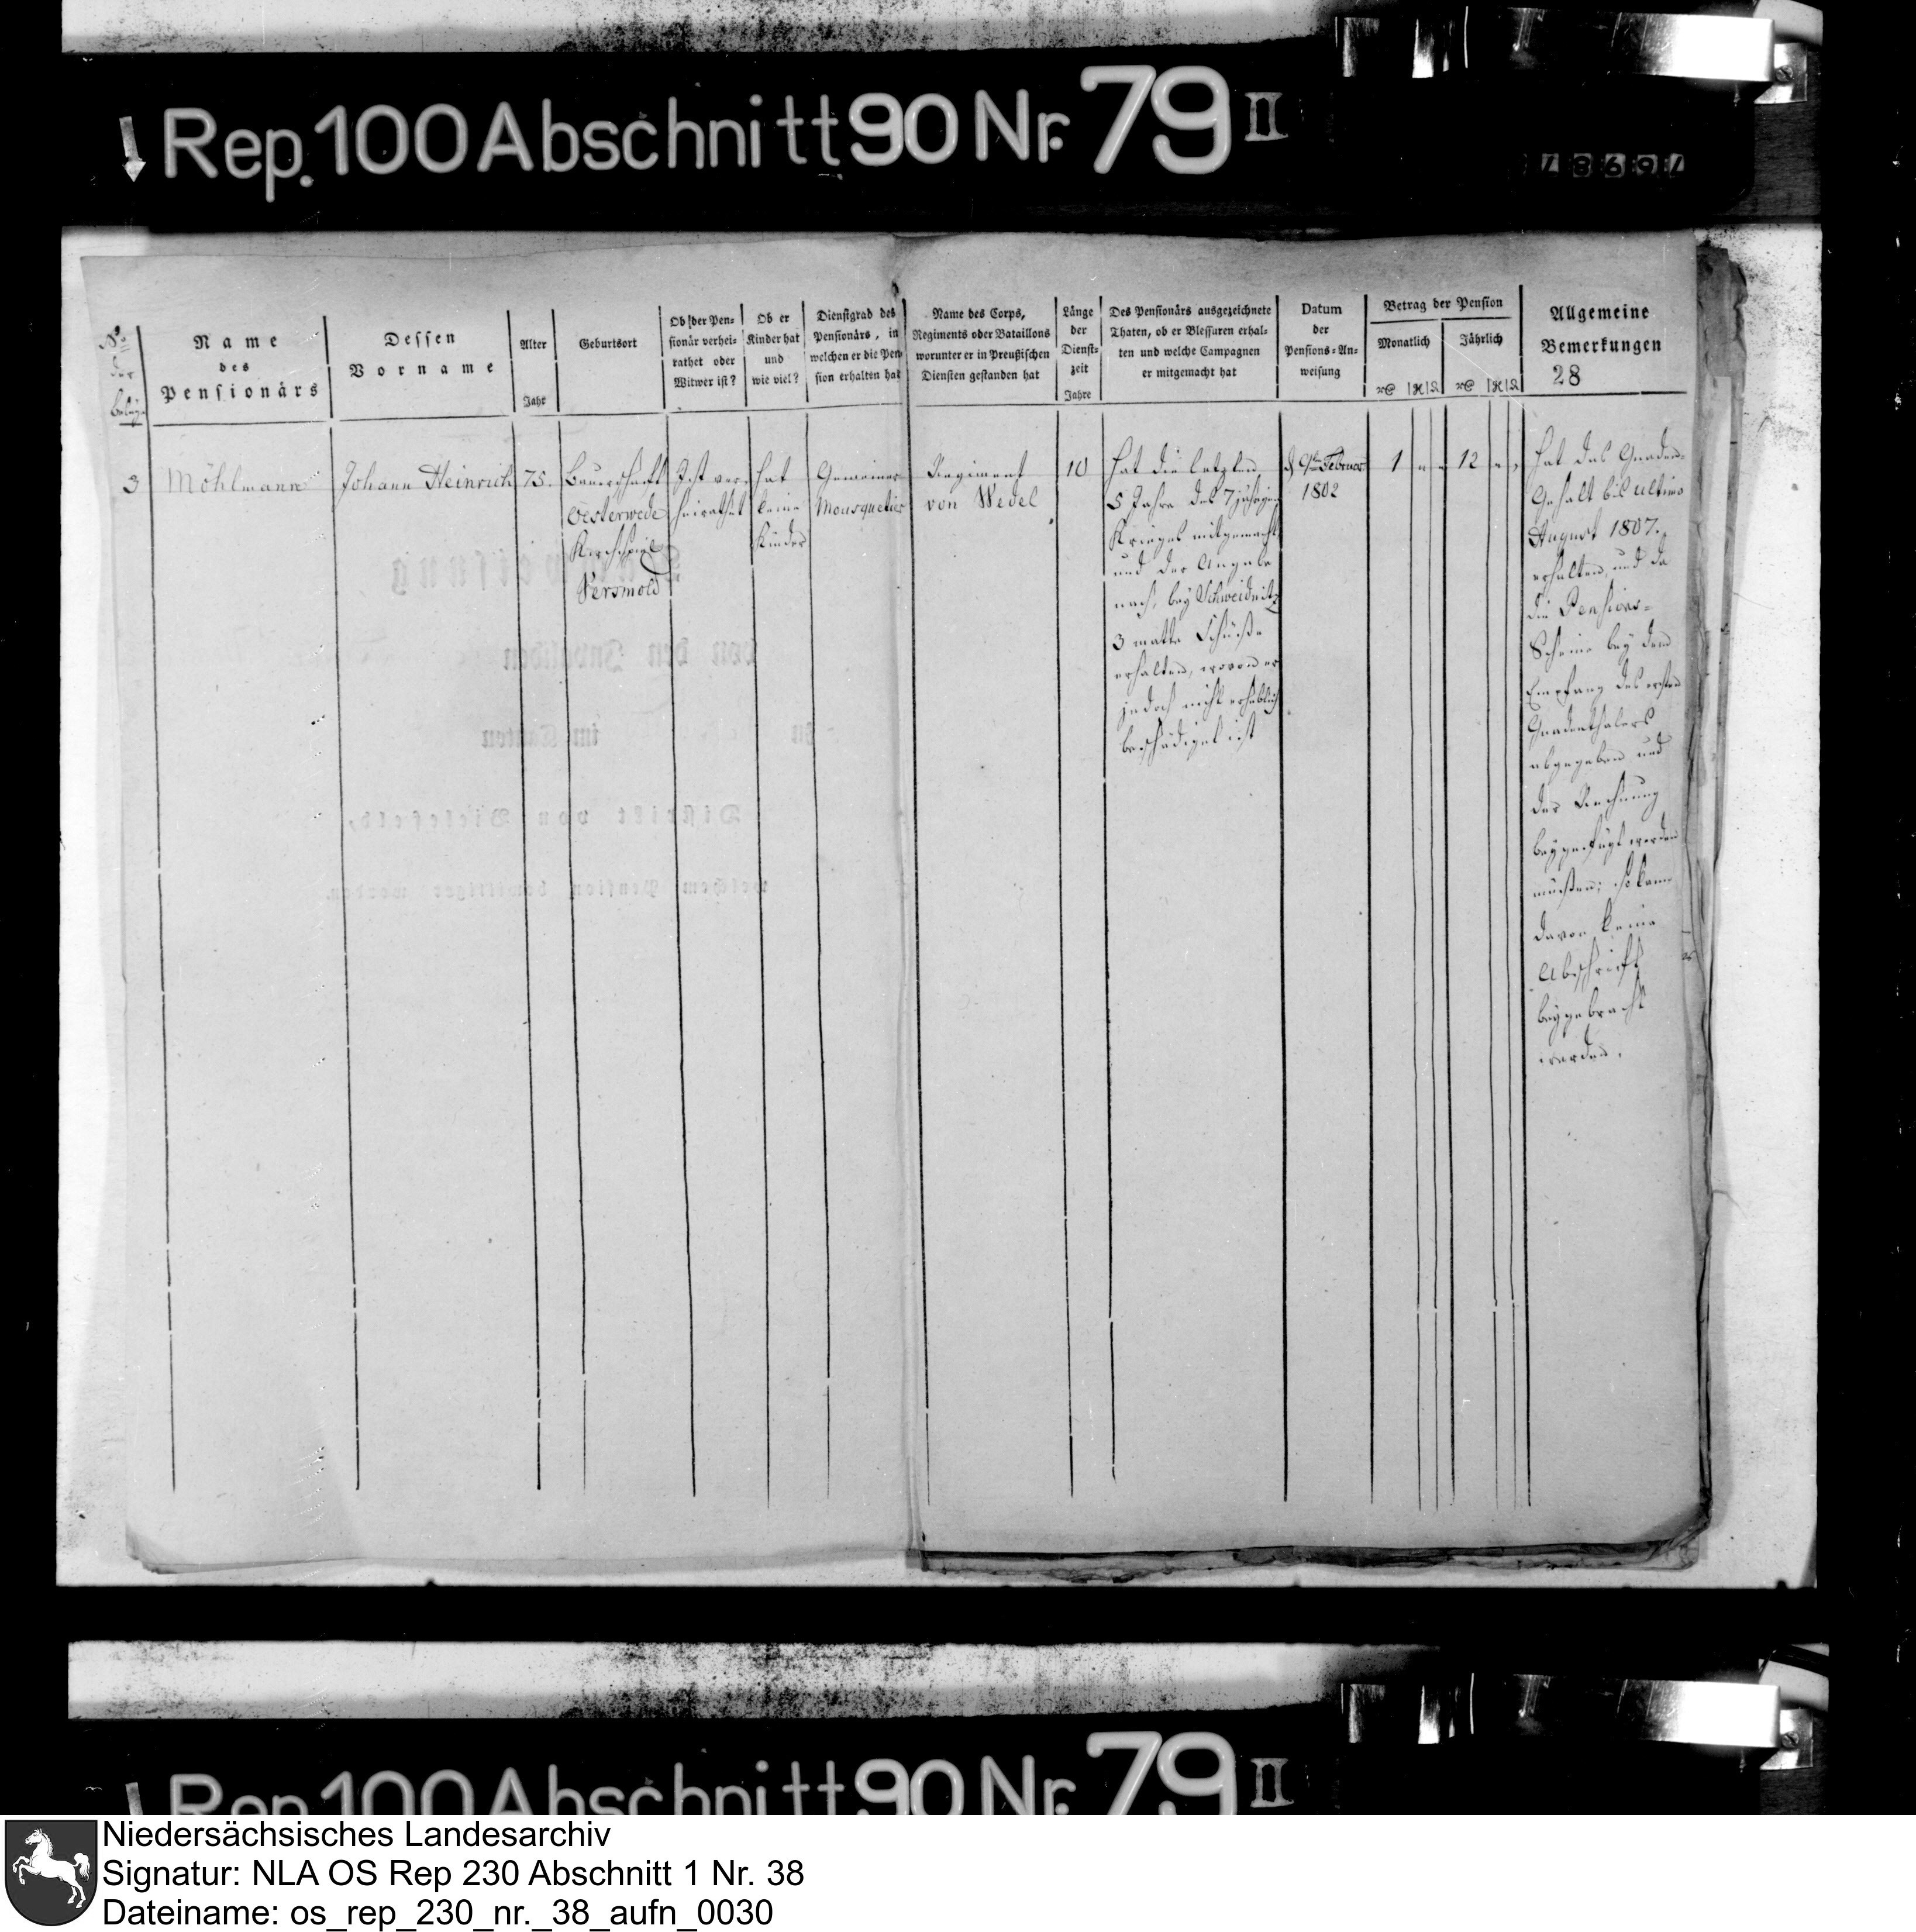 Rep. 100 Abschnitt 90 Nr. 79 II
78691
No.
der
Name
des
Pensionärs
Dessen
Vorname
Alter
Jahr
Geburtsort
Ob der Pen-
sionär verhei-
rathet oder
Witwer ist?
Ob er
Kinder hat
und
wie viel?
Dienstgrad des
Pensionärs, in
welchen er die Pen-
sion erhalten hat
Name des Corps,
Regiments oder Bataillons
worunter er in Preußischen
Diensten gestanden hat
Länge
der
Dienst-
zeit
Jahre
Des Pensionärs ausgezeichnete
Thaten, ob er Blessuren erhal-
ten und welche Campagnen
er mitgemacht hat
Datum
der
Pensions-An-
weisung
Betrag der Pension
Monatlich
Jährlich
Allgemeine
Bemerkungen
28
3
Möhlmann
Johann Heinrich
75.
Bauerschaft
Oesterwede
Kirchspiel
Versmold
Ist ver-
heirathet
hat
keine
Kinder
Gemeiner
Mousquetier
Regiment
von Wedel
10
Hat die letzten
5 Jahre des 7jährigen
Krieges mitgemacht,
und der Angabe
nach, bey Schweidnitz
3 matte Schüße
erhalten, wovon er
jedoch nicht erheblich
beschädiget ist
d. 9ten Februar
1802
1 " "
12 " "
Hat das Gnaden-
Gehalt bis ultimo
August 1807.
erhalten, und da
die Pensions-
Scheine bey dem
Empfang des ersten
Gnadenthalers
abgegeben und
der Rechnung
beygefügt werden
müßen; so kann
davon keine
Abschrift
beygebracht
werden.
Anweisung
von den Invaliden
zu im Kanton
Distrikt von Bielefeld,
welchem Pension bewilliget worden.
Rep. 100 Abschnitt 90 Nr. 79 II
Niedersächsisches Landesarchiv
Signatur: NLA OS Rep 230 Abschnitt 1 Nr. 38
Dateiname: os_rep_230_nr._38_aufn_0030